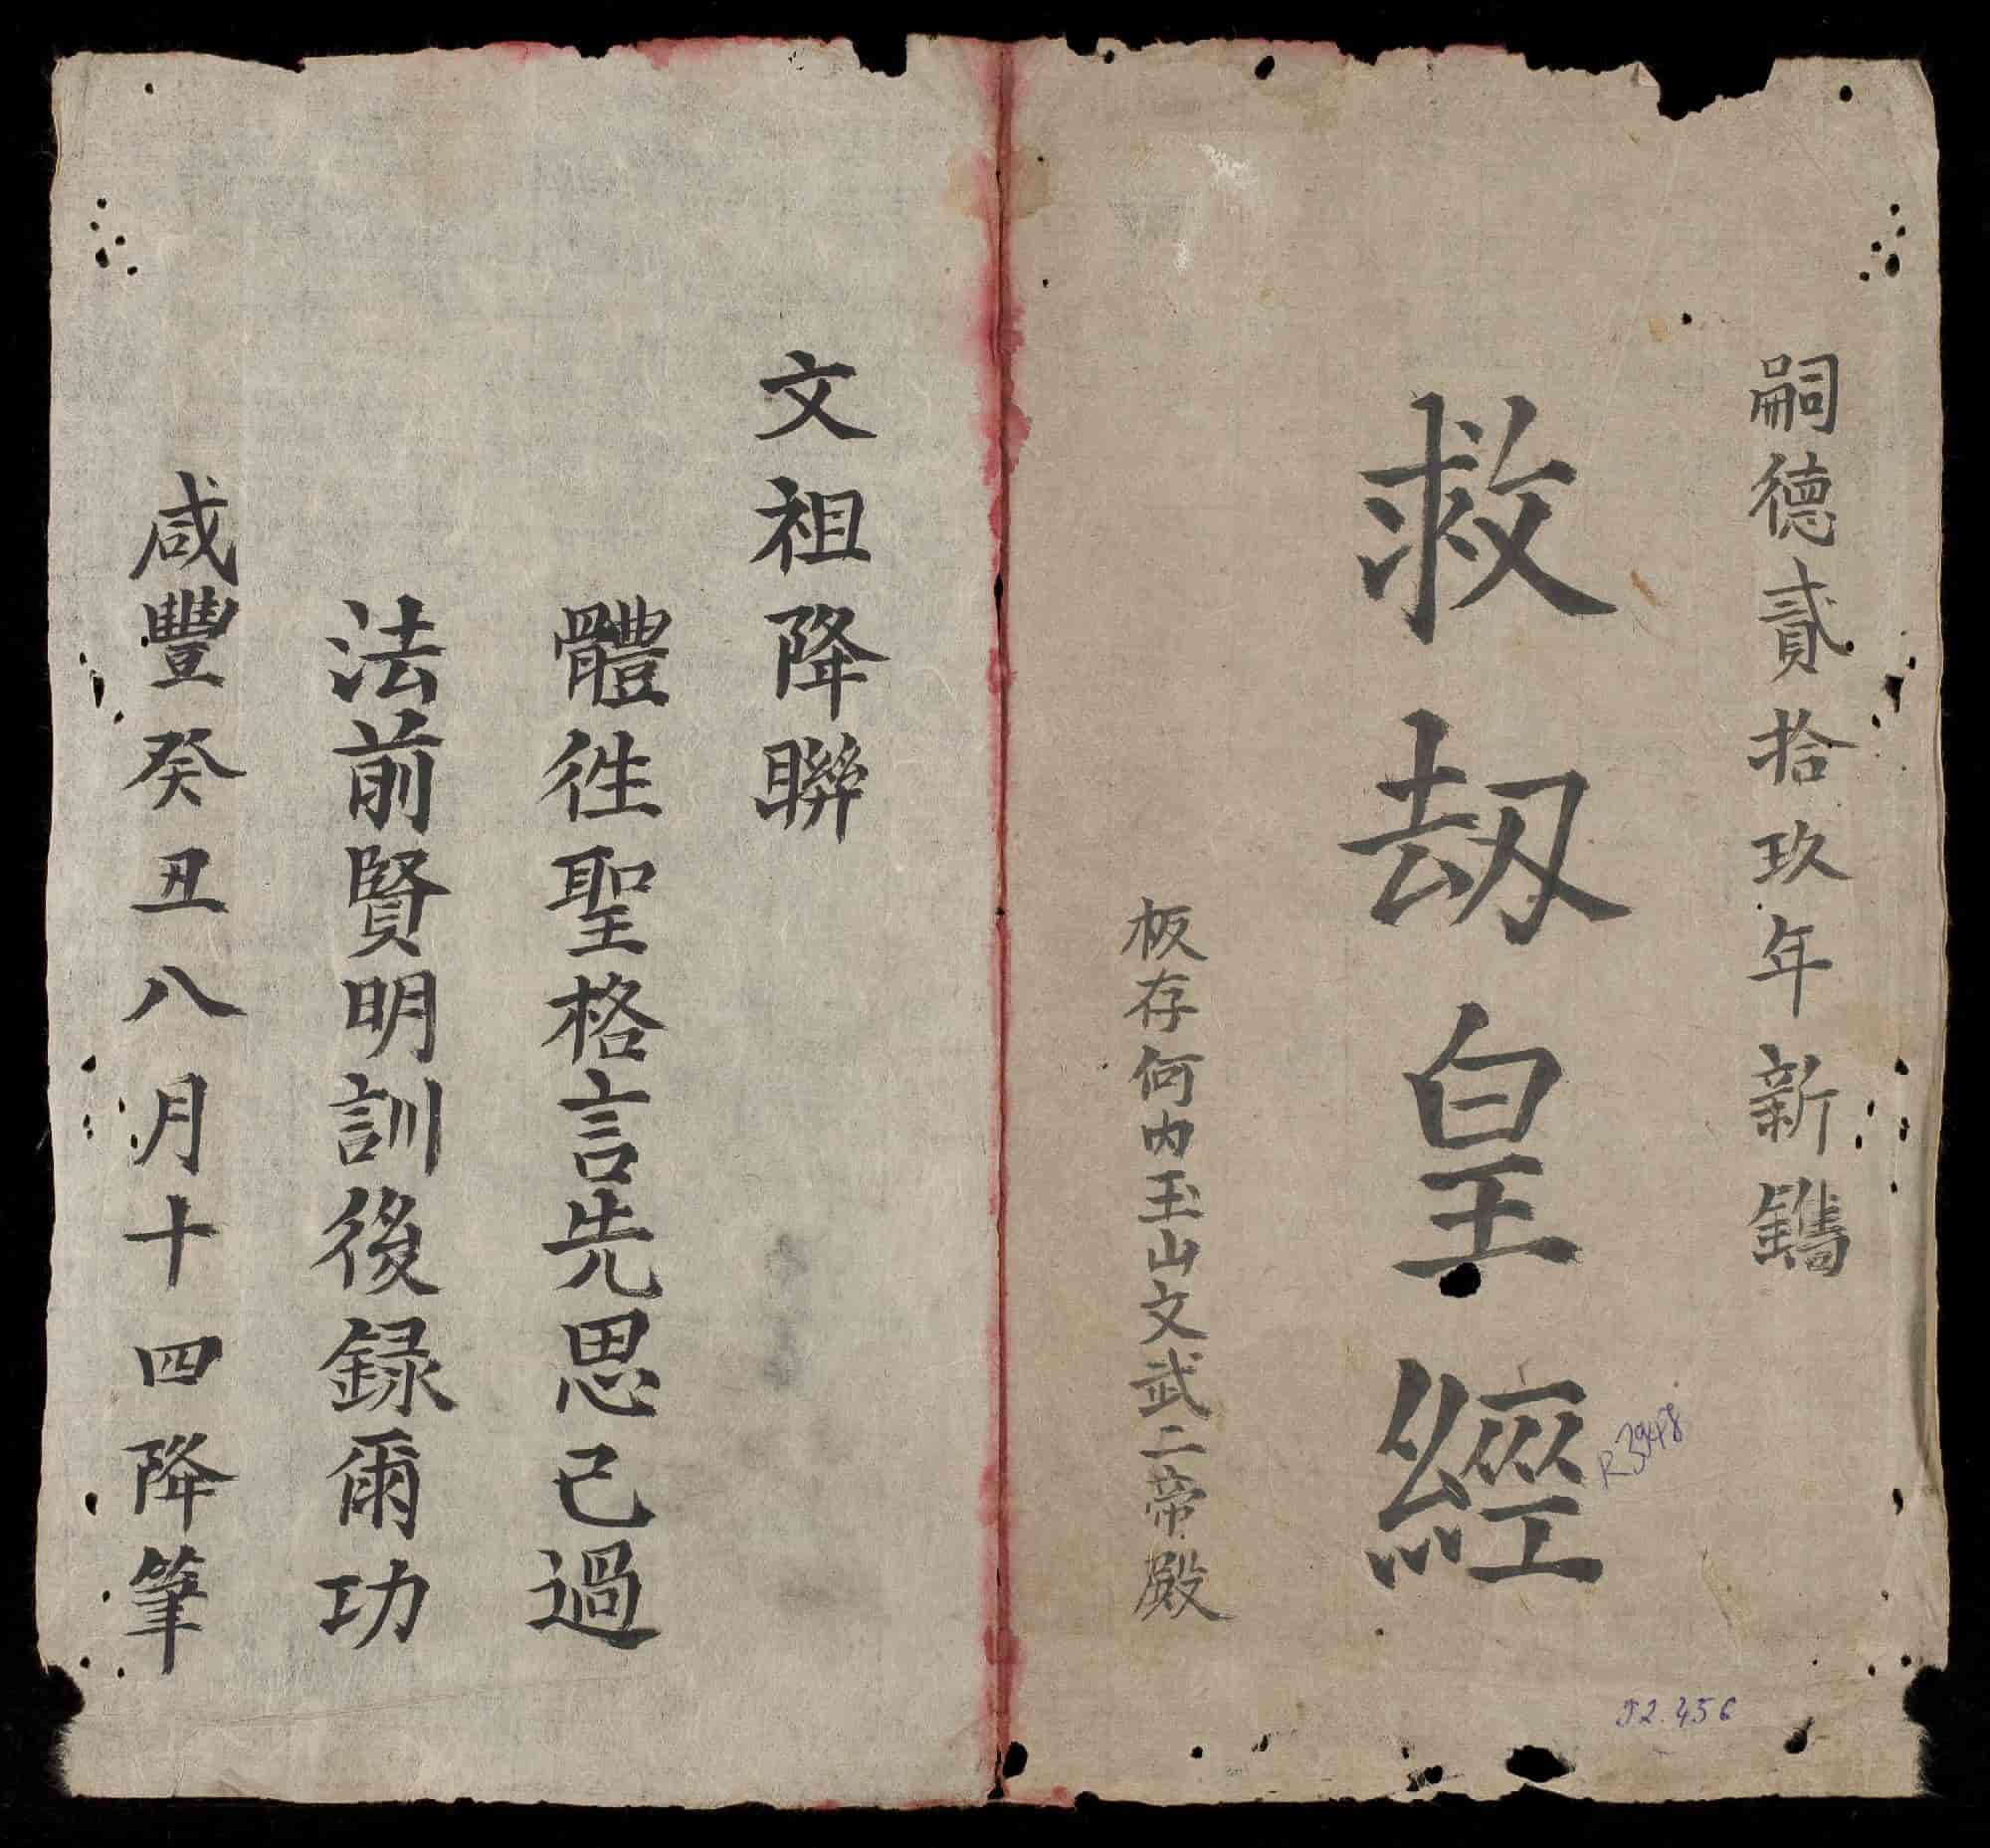 嗣德貳拾玖年新鐫
救刼皇經
板存何内玉山文武二帝殿
R3948
文祖降聯
體徃聖格言先思己過
法前賢明訓後録爾功
咸豐癸丑八月十四降筆